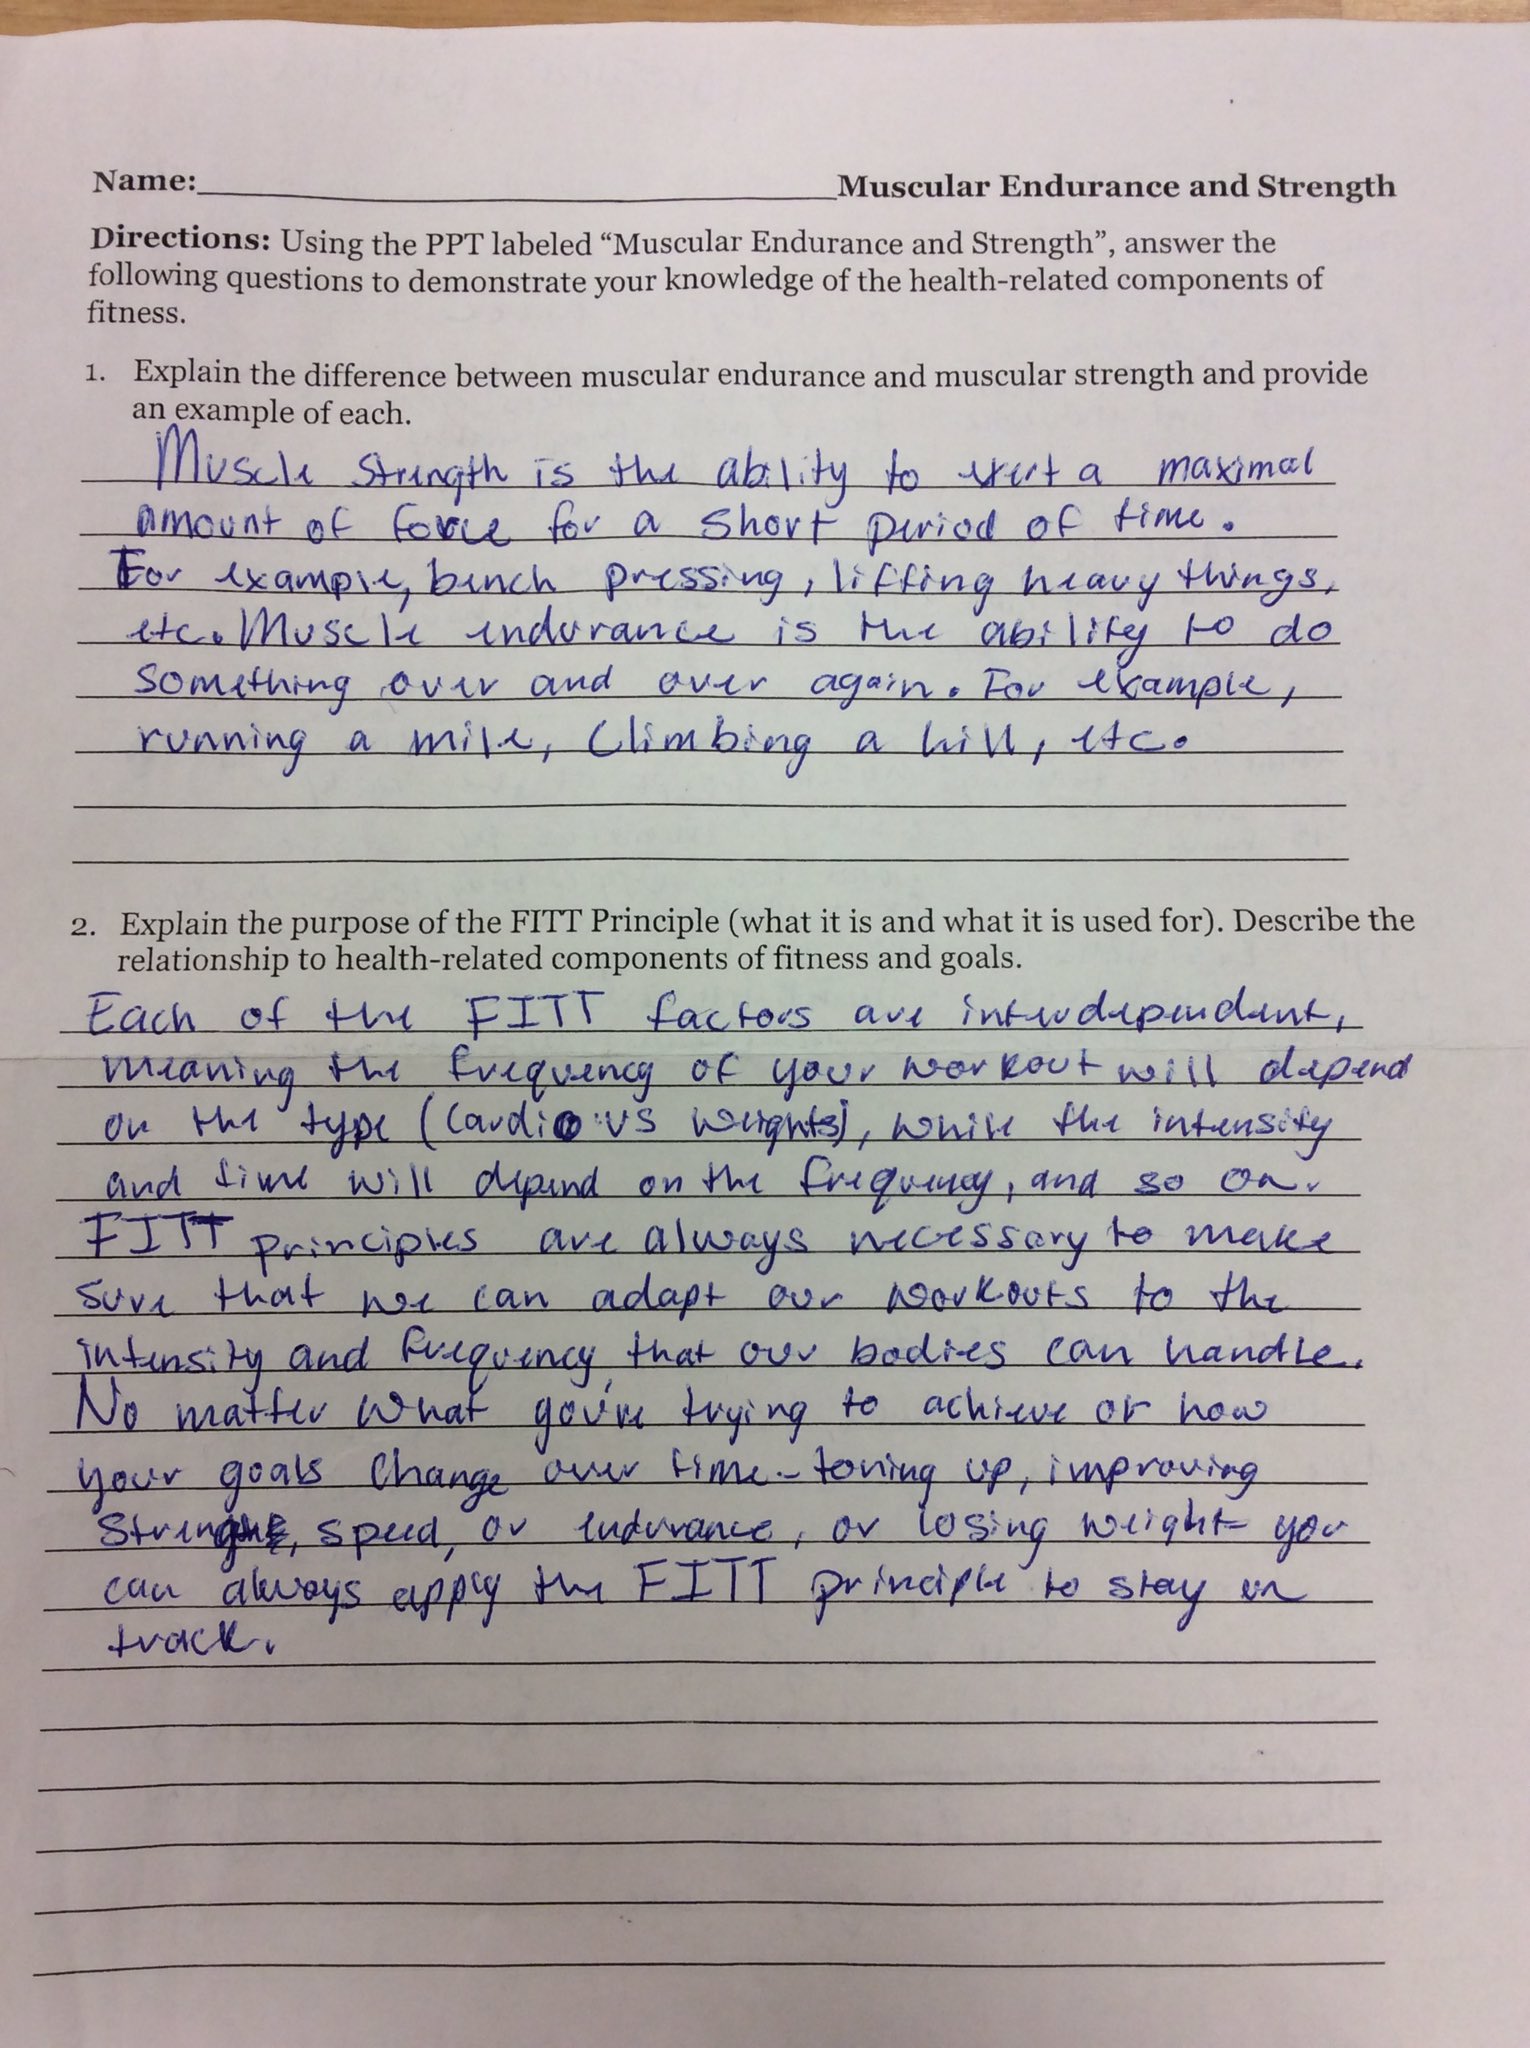 Name: Muscular Endurance and Strength
Directions: Using the PPT labeled “Muscular Endurance and Strength”, answer the
following questions to demonstrate your knowledge of the health-related components of
fitness.
1. Explain the difference between muscular endurance and muscular strength and provide
an example of each.
Muscle strength is the ability to exert a maximal
amount of force for a short period of time.
For example, bench pressing, lifting heavy things,
etc. Muscle endurance is the ability to do
something over and over again. For example,
running a mile, climbing a hill, etc.
2. Explain the purpose of the FITT Principle (what it is and what it is used for). Describe the
relationship to health-related components of fitness and goals.
Each of the FITT factors are interdependent,
meaning the frequency of your workout will depend
on the type (cardio vs weights), while the intensity
and time will depend on the frequency, and so on.
FITT principles are always necessary to make
sure that we can adapt our workouts to the
intensity and frequency that our bodies can handle.
No matter what you're trying to achieve or how
your goals change over time - toning up, improving
strength, speed, or endurance, or losing weight - you
can always apply the FITT principle to stay on
track.